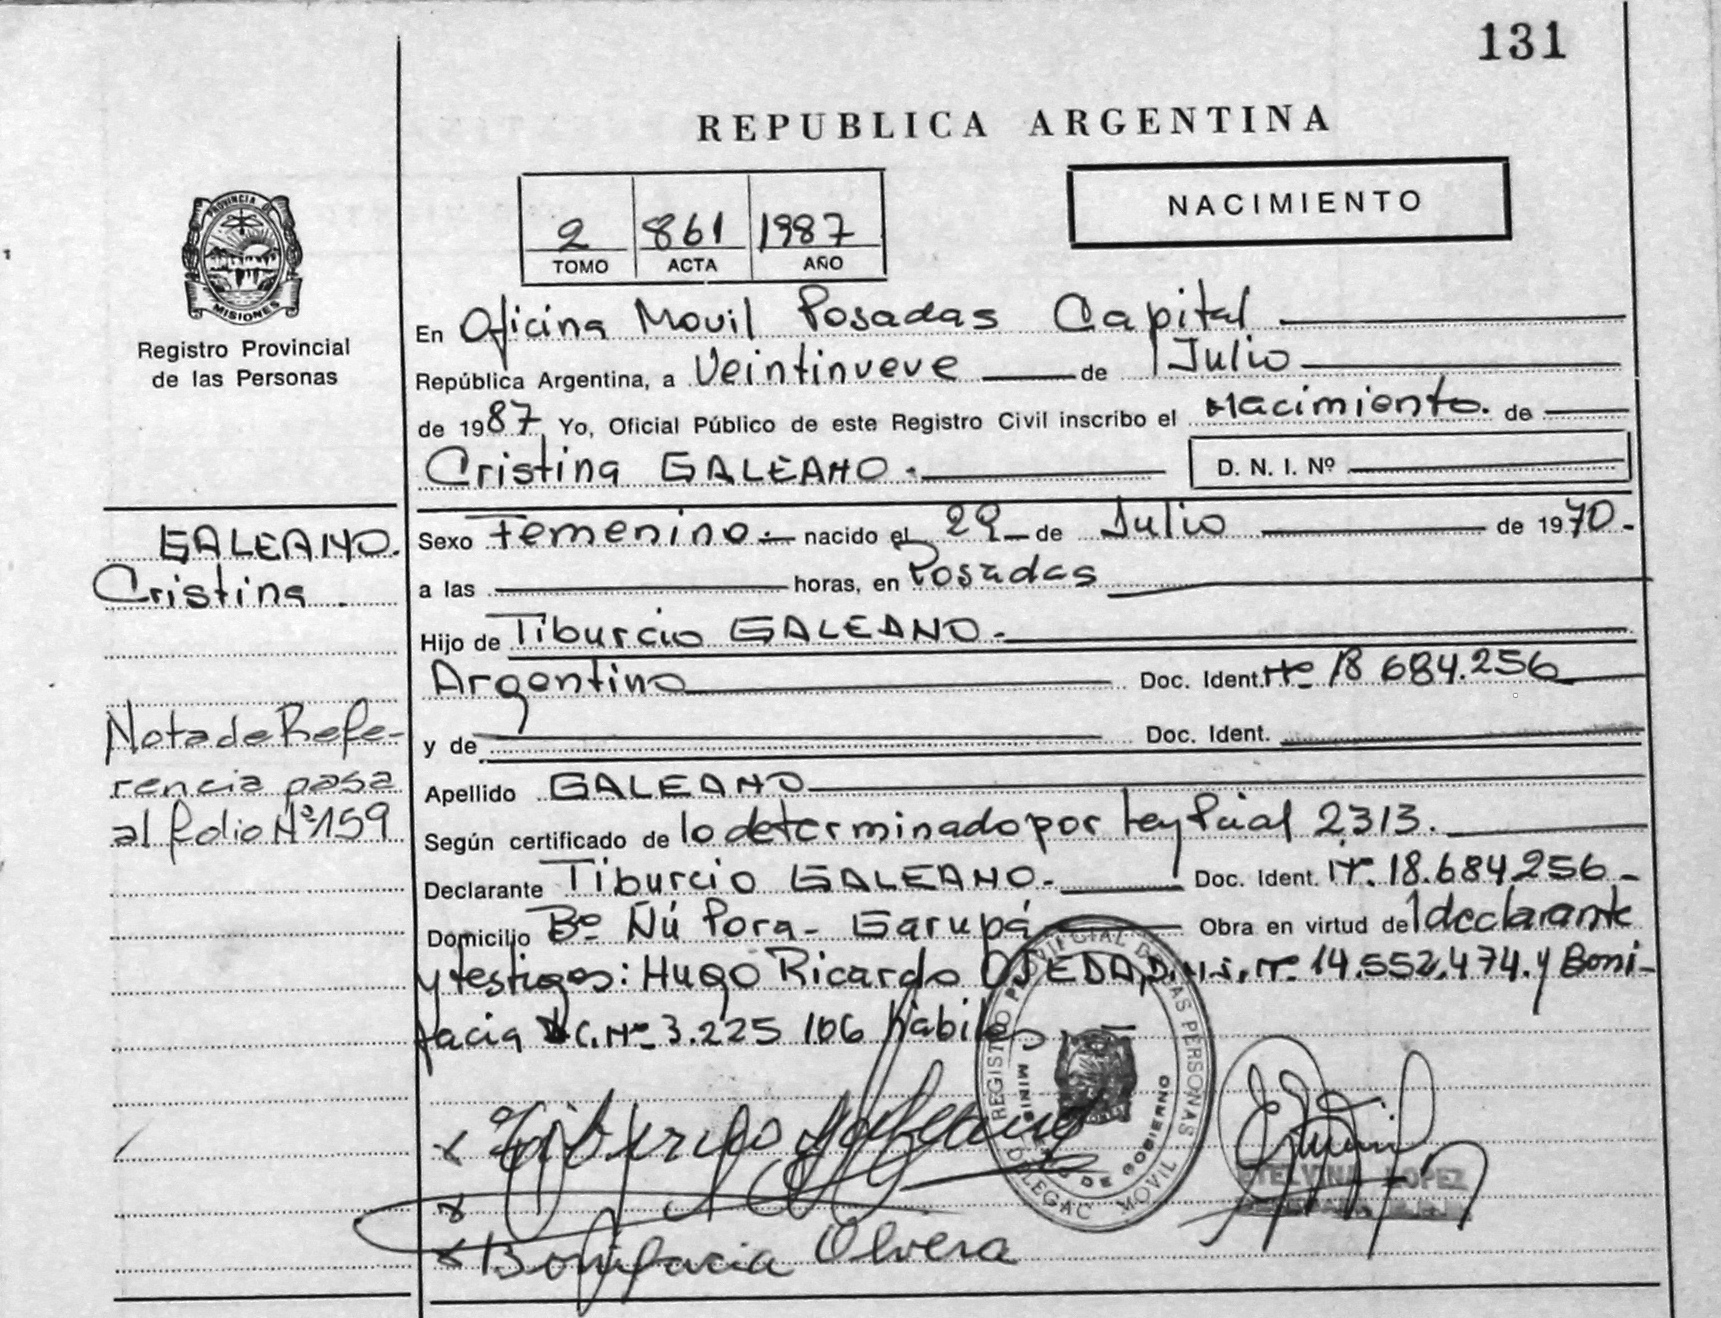 131
REPUBLICA ARGENTINA
2 861 1987
TOMO ACTA AÑO
NACIMIENTO
PROVINCIA DE
MISIONES
Registro Provincial
de las Personas
En Oficina Movil Posadas Capital
República Argentina, a Veintinueve de Julio
de 1987 Yo, Oficial Público de este Registro Civil inscribo el Nacimiento. de
Cristina GALEANO. D. N. I. Nº
GALEANO.
Cristina.
Sexo Femenino.- nacido el 29 de Julio de 1970.-
a las horas, en Posadas
Hijo de Tiburcio GALEANO.-
Argentino Doc. Ident. Nº 18 684.256
y de Doc. Ident.
Nota de Refe-
rencia pasa
al folio Nº 159
Apellido GALEANO
Según certificado de lo determinado por Ley Pcial 2313.
Declarante Tiburcio GALEANO.- Doc. Ident. Nº. 18.684.256-
Domicilio Bº Ñú Pora - Garupá Obra en virtud del declarante
y testigos: Hugo Ricardo OJEDA D.N.I. Nº 14.552.474. y Boni-
facia C. Nº 3.225 106 habiles.
REGISTRO PROVINCIAL DE LAS PERSONAS
MINISTERIO DE GOBIERNO
DELEGAC. MOVIL
x Tiburcio Galeano
x
x Bonifacia Olvera
ETELVINA LOPEZ